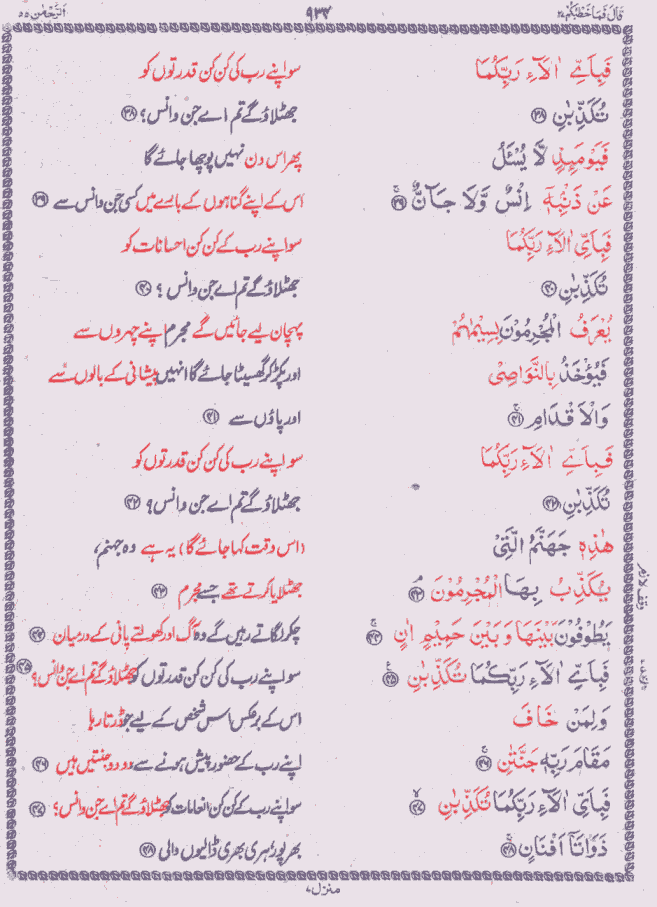 قَالَ فَمَا خَطْبُكُمْ ۲۷ ۹۳۷ اَلرَّحْمٰن ۵۵
فَبِاَيِّ اٰلَآءِ رَبِّكُمَا سو اپنے رب کی کن کن قدرتوں کو
تُكَذِّبٰنِ ﴿۳۸﴾ جھٹلاؤ گے تم اے جن وانس؟ ﴿۳۸﴾
فَيَوْمَئِذٍ لَّا يُسْئَلُ پھر اس دن نہیں پوچھا جائے گا
عَنْ ذَنْۢبِهٖٓ اِنْسٌ وَّلَا جَآنٌّ ﴿۳۹﴾ اس کے اپنے گناہوں کے بارے میں کسی جن وانس سے ﴿۳۹﴾
فَبِاَيِّ اٰلَآءِ رَبِّكُمَا سو اپنے رب کے کن کن احسانات کو
تُكَذِّبٰنِ ﴿۴۰﴾ جھٹلاؤ گے تم اے جن وانس ؟ ﴿۴۰﴾
يُعْرَفُ الْمُجْرِمُوْنَ بِسِيْمٰهُمْ پہچان لیے جائیں گے مجرم اپنے چہروں سے
فَيُؤْخَذُ بِالنَّوَاصِيْ اور پکڑ کر گھسیٹا جائے گا انہیں پیشانی کے بالوں سے
وَالْاَقْدَامِ ﴿۴۱﴾ اور پاؤں سے ﴿۴۱﴾
فَبِاَيِّ اٰلَآءِ رَبِّكُمَا سو اپنے رب کی کن کن قدرتوں کو
تُكَذِّبٰنِ ﴿۴۲﴾ جھٹلاؤ گے تم اے جن وانس؟ ﴿۴۲﴾
هٰذِهٖ جَهَنَّمُ الَّتِيْ (اس وقت کہا جائے گا) یہ ہے وہ جہنم،
يُكَذِّبُ بِهَا الْمُجْرِمُوْنَ ﴿۴۳﴾ جھٹلایا کرتے تھے جسے مجرم ﴿۴۳﴾
يَطُوْفُوْنَ بَيْنَهَا وَبَيْنَ حَمِيْمٍ اٰنٍ ﴿۴۴﴾ چکر لگاتے رہیں گے وہ آگ اور کھولتے پانی کے درمیان ﴿۴۴﴾
فَبِاَيِّ اٰلَآءِ رَبِّكُمَا تُكَذِّبٰنِ ﴿۴۵﴾ سو اپنے رب کی کن کن قدرتوں کو جھٹلاؤ گے تم اے جن وانس؟ ﴿۴۵﴾
وَلِمَنْ خَافَ اس کے برعکس اس شخص کے لیے جو ڈرتا رہا
مَقَامَ رَبِّهٖ جَنَّتٰنِ ﴿۴۶﴾ اپنے رب کے حضور پیش ہونے سے دو دو جنتیں ہیں ﴿۴۶﴾
فَبِاَيِّ اٰلَآءِ رَبِّكُمَا تُكَذِّبٰنِ ﴿۴۷﴾ سو اپنے رب کے کن کن انعامات کو جھٹلاؤ گے تم اے جن وانس؟ ﴿۴۷﴾
ذَوَاتَآ اَفْنَانٍ ﴿۴۸﴾ بھرپور ہری بھری ڈالیوں والی ﴿۴۸﴾
وقف لازم
منزل ۷